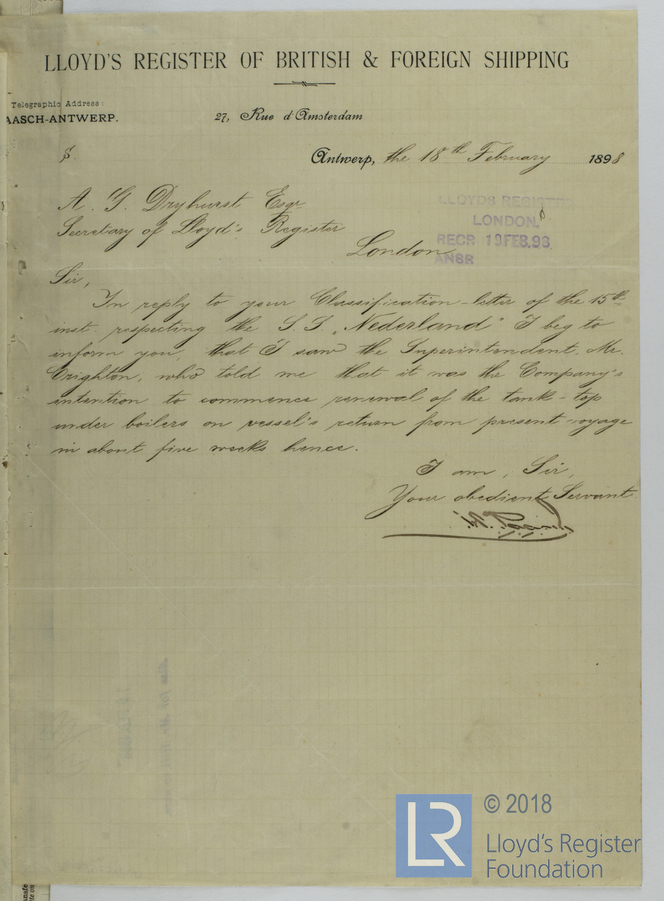 LLOYD'S REGISTER OF BRITISH & FOREIGN SHIPPING
Telegraphic Address:
AASCH-ANTWERP.
27, Rue d'Amsterdam
Antwerp, the 18th February 1898
A. G. Dryhurst Esqr.
Secretary of Lloyd's Register
London
LLOYDS REGISTER
LONDON.
RECR 19 FEB. 98
ANSR
Sir,
In reply to your Classification-letter of the 15th
inst respecting the S.S. „Nederland" I beg to
inform you, that I saw the Superintendent, Mr.
Crighton, who told me that it was the Company's
intention to commence renewal of the tank-top
under boilers on vessel's return from present voyage
in about five weeks hence.
I am, Sir,
Your obedient Servant
© 2018
LR
Lloyd's Register
Foundation